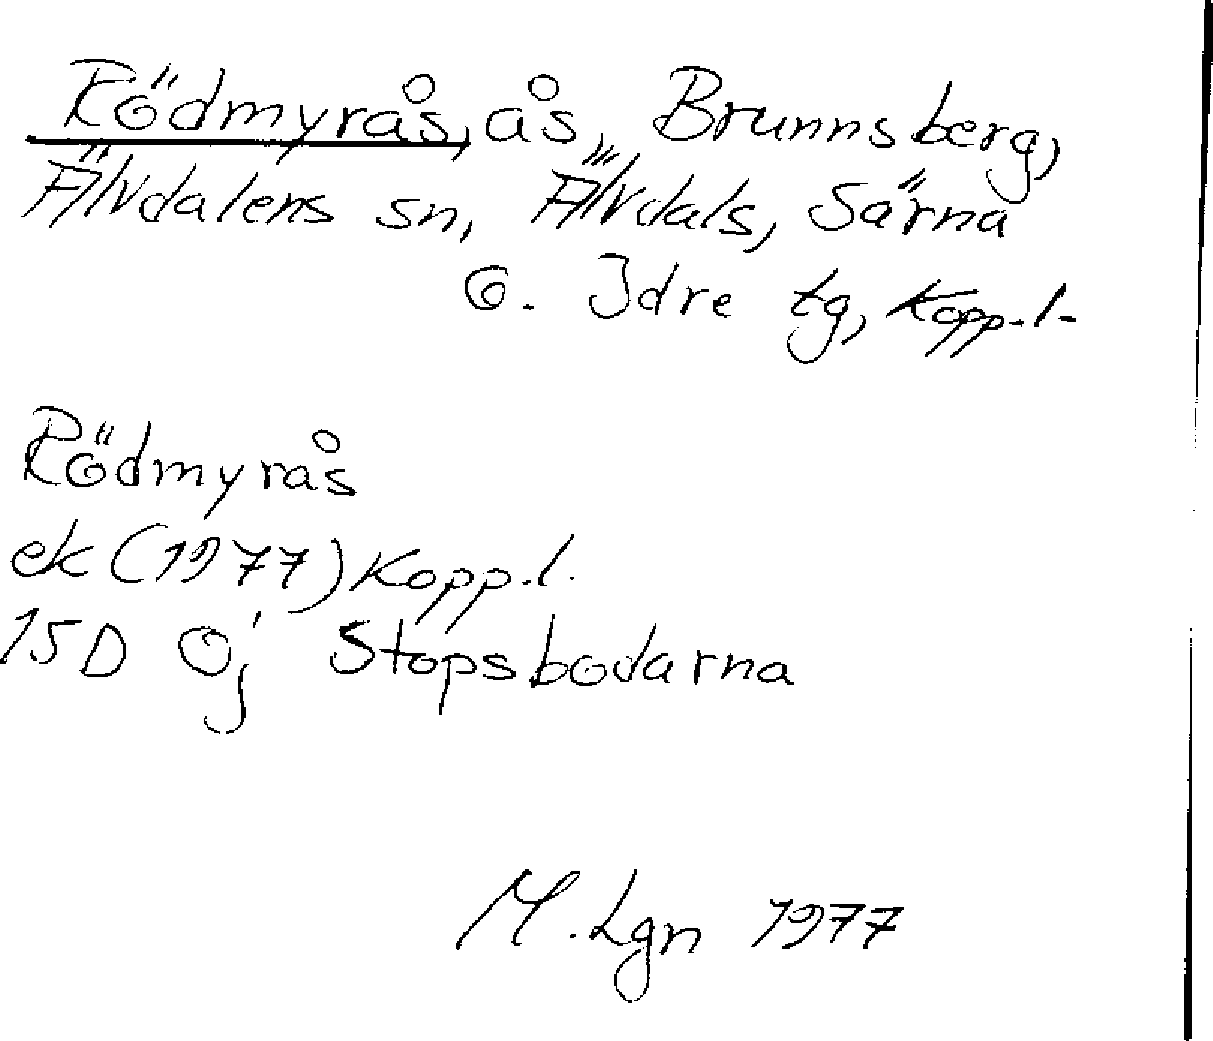 Rödmyrås, ås, Brunnsberg,
Älvdalens sn, Älvdals, Särna
o. Idre tg, Kopp.l.
Rödmyrås
ek (1977) Kopp.l.
15D 0j Stopsbodarna
M. Lgn 1977